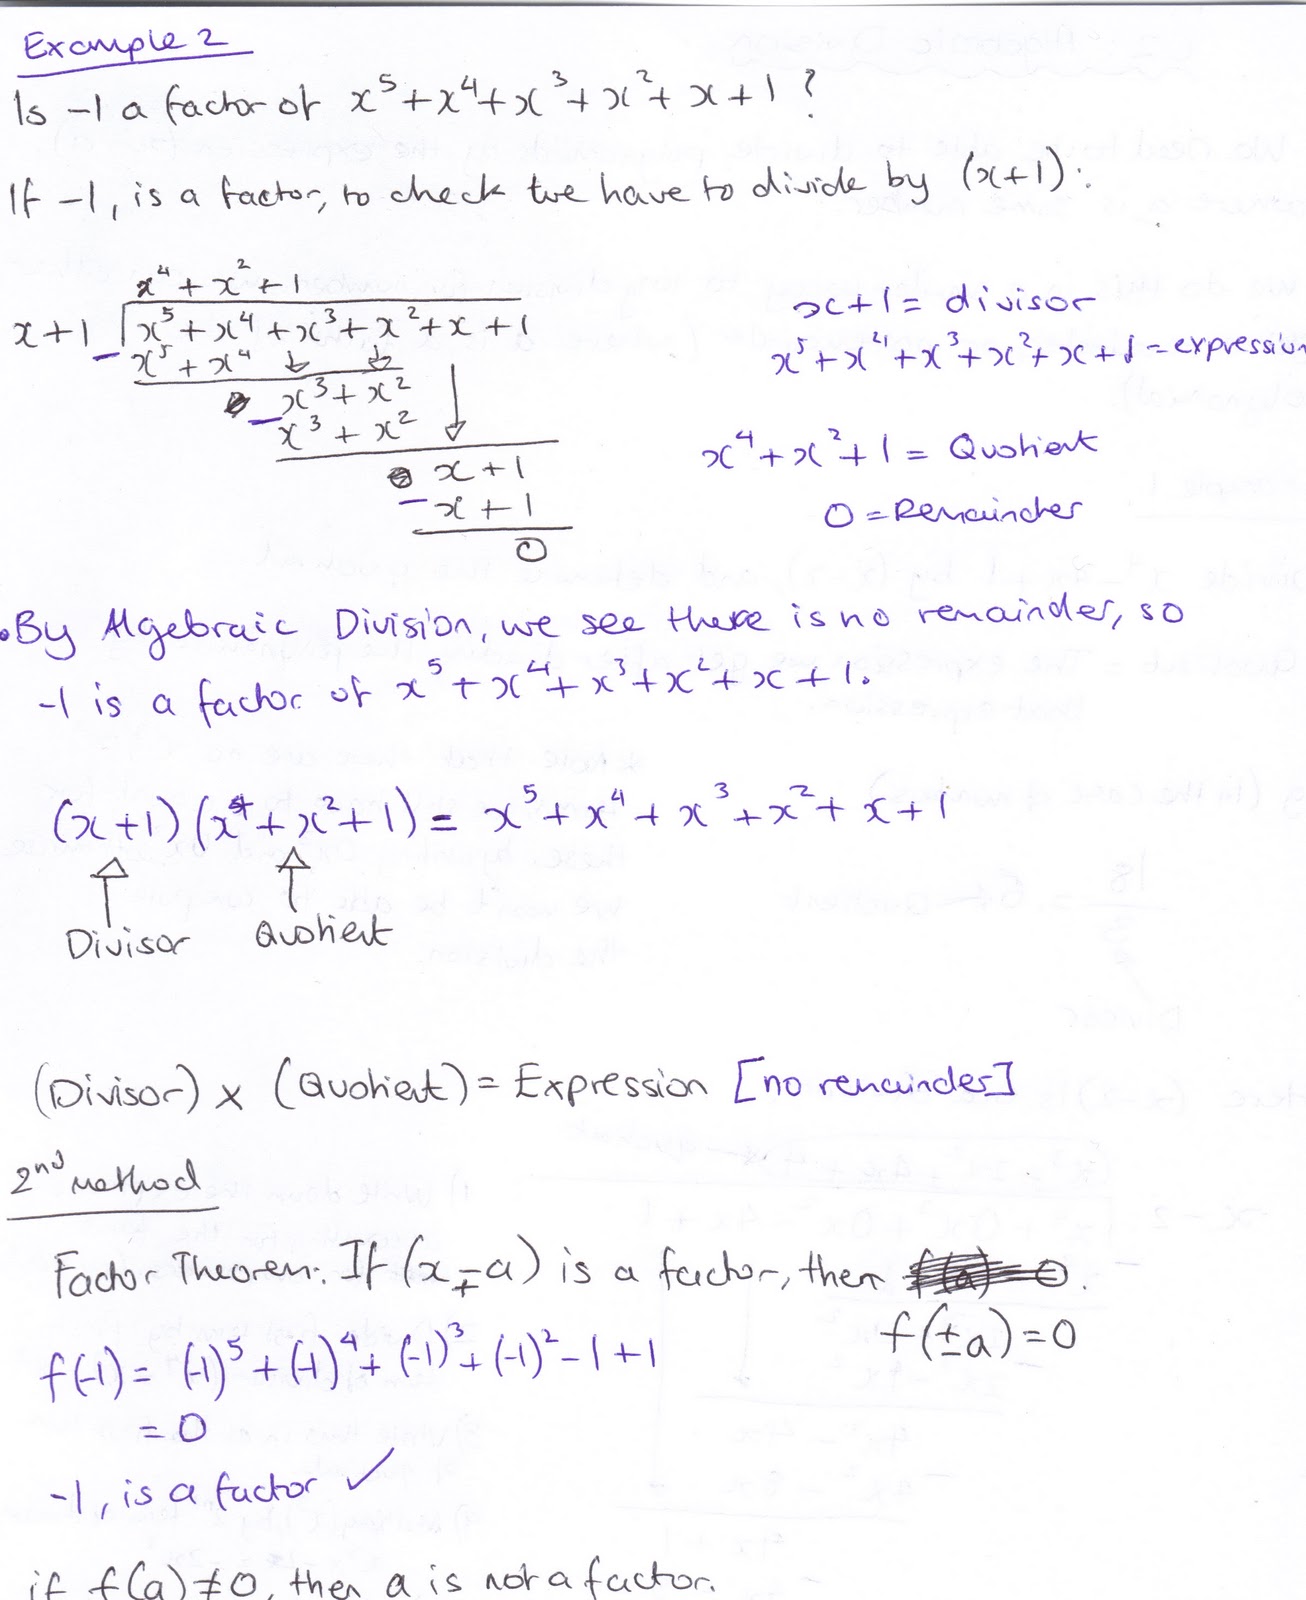 Example 2
Is -1 a factor of x⁵+x⁴+x³+x²+x+1?
If -1, is a factor, to check we have to divide by (x+1):
x⁴+x²+1
x+1 x⁵+x⁴+x³+x²+x+1
- x⁵+x⁴
x³+x²
- x³+x²
x+1
- x+1
0
x+1= divisor
x⁵+x⁴+x³+x²+x+1=expression
x⁴+x²+1= Quotient
0=Remainder
• By Algebraic Division, we see there is no remainder, so
-1 is a factor of x⁵+x⁴+x³+x²+x+1.
(x+1)(x⁴+x²+1)= x⁵+x⁴+x³+x²+x+1
Divisor Quotient
(Divisor) x (Quotient)= Expression [no remainder]
2nd method
Factor Theorem: If (x∓a) is a factor, then
f(±a)=0
f(-1)= (-1)⁵+(-1)⁴+(-1)³+(-1)²-1+1
=0
-1, is a factor ✓
if f(a)≠0, then a is not a factor.